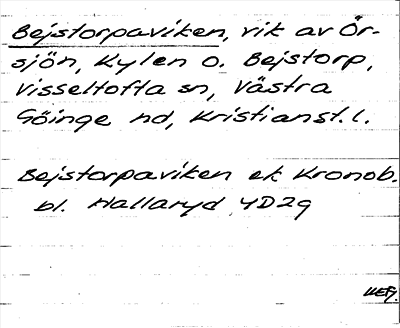 Bejstorpaviken, vik av Ör-
sjön, Kylen o. Bejstorp,
Visseltofta sn, Västra
Göinge hd, Kristianst. l.
Bejstorpaviken ek Kronob.
bl. Hallaryd 4D2g